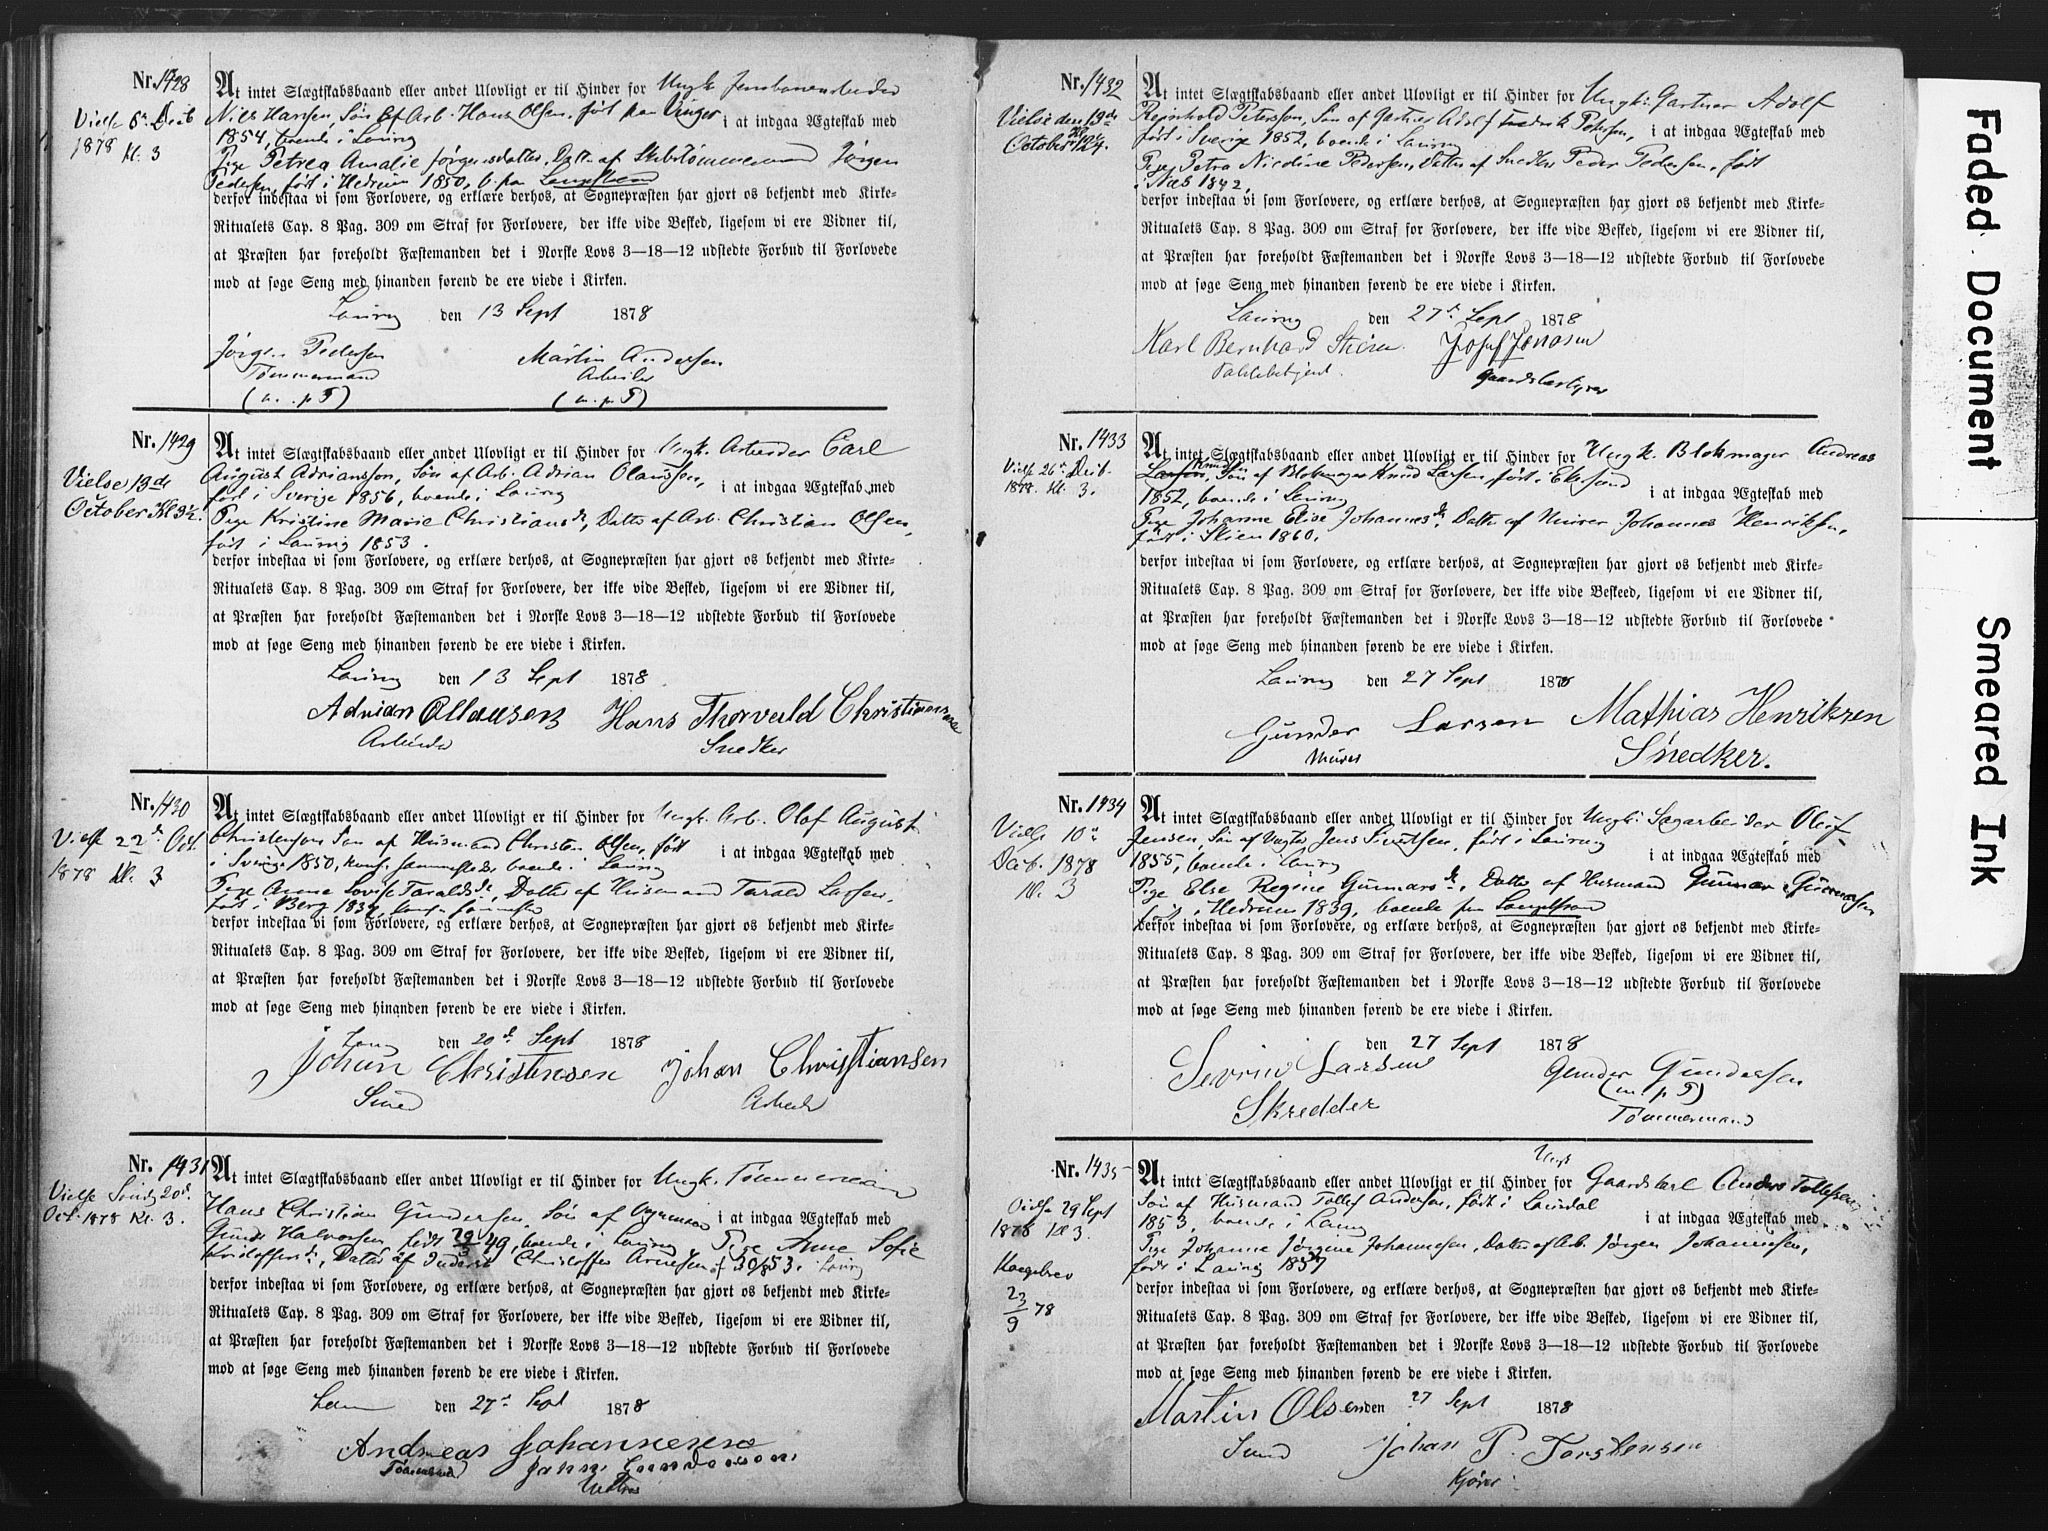 Nr. 1428
At intet Slægtskabsbaand eller andet Ulovligt er til Hinder for Ungk. Jernbanearbeider
Vielse 6te Decb 1878 Kl. 3
Niels Hansen, Søn af Arb. Hans Olsen, født paa Vinger i at indgaa Ægteskab med
1854, boende i Laurvig
Pige Petrea Amalie Jørgensdatter, Datter af Skibstømmermand Jørgen
Pedersen, født i Hedrum 1850, b. paa Langestrand
derfor indestaa vi som Forlovere, og erklære derhos, at Sognepræsten har gjort os bekjendt med Kirke-
Ritualets Cap. 8 Pag. 309 om Straf for Forlovere, der ikke vide Besked, ligesom vi ere Vidner til,
at Præsten har foreholdt Fæstemanden det i Norske Lovs 3—18—12 udstedte Forbud til Forlovede
mod at søge Seng med hinanden førend de ere viede i Kirken.
Laurvig den 13 Sept 1878
Jørgen Pedersen Martin Andersen
Tømmermand Arbeider
(m. p. P) (m. p. P)
Nr. 1429
At intet Slægtskabsbaand eller andet Ulovligt er til Hinder for Ungk. Arbeider Carl
Vielse 13de October Kl 3½
August Adriansson, Søn af Arb. Adrian Olausson, i at indgaa Ægteskab med
født i Sverige 1856, boende i Laurvig
Pige Kristine Marie Christiansd., Datter af Arb. Christian Olsen,
født i Laurvig 1853.
derfor indestaa vi som Forlovere, og erklære derhos, at Sognepræsten har gjort os bekjendt med Kirke-
Ritualets Cap. 8 Pag. 309 om Straf for Forlovere, der ikke vide Besked, ligesom vi ere Vidner til,
at Præsten har foreholdt Fæstemanden det i Norske Lovs 3—18—12 udstedte Forbud til Forlovede
mod at søge Seng med hinanden førend de ere viede i Kirken.
Laurvig den 13 Sept 1878
Adrian Ollausen Hans Thorvald Christiansen
Arbeider Snedker
Nr. 1430
At intet Slægtskabsbaand eller andet Ulovligt er til Hinder for Ungk. Arb. Olaf August
Vielse 22de Oct. 1878 Kl. 3
Christenson Søn af Husmand Christen Olsen, født i at indgaa Ægteskab med
i Sverige 1850, konf. sammesteds, boende i Laurvig
Pige Anne Lovise Taraldsd., Datter af Husmand Tarald Larsen,
født i Berg 1839, konf. sammesteds
derfor indestaa vi som Forlovere, og erklære derhos, at Sognepræsten har gjort os bekjendt med Kirke-
Ritualets Cap. 8 Pag. 309 om Straf for Forlovere, der ikke vide Besked, ligesom vi ere Vidner til,
at Præsten har foreholdt Fæstemanden det i Norske Lovs 3—18—12 udstedte Forbud til Forlovede
mod at søge Seng med hinanden førend de ere viede i Kirken.
den 20de Sept 1878
Johan Christensen Johan Christiansen
Smed Arbeider
Nr. 1431
At intet Slægtskabsbaand eller andet Ulovligt er til Hinder for Ungk. Tømmermand
Vielse Søndg 20de Oct. 1878 Kl. 3.
Hans Christian Gundersen, Søn af i at indgaa Ægteskab med
Gunder Halvorsen født 29/3 49, boende i Laurvig Pige Anne Sofie
Kristoffersd., Datter af Christoffer Arnesen f 30/8 53. Laurvig
derfor indestaa vi som Forlovere, og erklære derhos, at Sognepræsten har gjort os bekjendt med Kirke-
Ritualets Cap. 8 Pag. 309 om Straf for Forlovere, der ikke vide Besked, ligesom vi ere Vidner til,
at Præsten har foreholdt Fæstemanden det i Norske Lovs 3—18—12 udstedte Forbud til Forlovede
mod at søge Seng med hinanden førend de ere viede i Kirken.
den 27de Sept 1878
Andreas Johannesen
Tømmermand
Nr. 1432
At intet Slægtskabsbaand eller andet Ulovligt er til Hinder for Ungk. Gartner Adolf
Vielse den 13de October Kl 4.
Rejnhold Petersson, Søn af Gartner Adolf Fredrik Petersen, i at indgaa Ægteskab med
født i Sverige 1852, boende i Laurvig
Pige Petra Nicoline Pedersen, Datter af Snedker Peder Pedersen, født
i Næs 1842,
derfor indestaa vi som Forlovere, og erklære derhos, at Sognepræsten har gjort os bekjendt med Kirke-
Ritualets Cap. 8 Pag. 309 om Straf for Forlovere, der ikke vide Besked, ligesom vi ere Vidner til,
at Præsten har foreholdt Fæstemanden det i Norske Lovs 3—18—12 udstedte Forbud til Forlovede
mod at søge Seng med hinanden førend de ere viede i Kirken.
Laurvig den 27de Sept 1878
Karl Bernhard Josef Jonasen
Toldbetjent. Gaardsbestyrer
Nr. 1433
At intet Slægtskabsbaand eller andet Ulovligt er til Hinder for Ungk. Blokmager Andreas
Vielse 26de Decb. 1878. Kl. 3.
Larsen, Knuds Søn af Blokmager Knud Larsen, født i Ekersund i at indgaa Ægteskab med
1852, boende i Laurvig
Pige Johanne Elise Johannesd. Datter af Murer Johannes Henriksen,
født i Skien 1860.
derfor indestaa vi som Forlovere, og erklære derhos, at Sognepræsten har gjort os bekjendt med Kirke-
Ritualets Cap. 8 Pag. 309 om Straf for Forlovere, der ikke vide Beskeed, ligesom vi ere Vidner til,
at Præsten har foreholdt Fæstemanden det i Norske Lovs 3—18—12 udstedte Forbud til Forlovede
mod at søge Seng med hinanden førend de ere viede i Kirken.
Laurvig den 27 Sept 1878
Gunder Larsen Mathias Henriksen
Murer Snedker.
Nr. 1434
At intet Slægtskabsbaand eller andet Ulovligt er til Hinder for Ungk. Sagarbeider Oluf
Vielse 10de Decb. 1878 Kl. 3
Jensen, Søn af Vægter Jens Sivertsen, født i Laurvig i at indgaa Ægteskab med
1855, boende i Laurvig
Pige Else Regine Gunnarsd., Datter af Husmand Gunnar Gunnarsen
født i Hedrum 1839, boende paa Langestrand
derfor indestaa vi som Forlovere, og erklære derhos, at Sognepræsten har gjort os bekjendt med Kirke-
Ritualets Cap. 8 Pag. 309 om Straf for Forlovere, der ikke vide Besked, ligesom vi ere Vidner til,
at Præsten har foreholdt Fæstemanden det i Norske Lovs 3—18—12 udstedte Forbud til Forlovede
mod at søge Seng med hinanden førend de ere viede i Kirken.
den 27 Sept 1878
Severin Larsen Gunder Gundersen
(m. p. P)
Skredder Tømmermand
Nr. 1435
At intet Slægtskabsbaand eller andet Ulovligt er til Hinder for Ungk Gaardskarl Anders Tollefsen
Vielse 29 Sept 1878 Kl 3.
Søn af Husmand Tollef Andersen, født i Laurdal i at indgaa Ægteskab med
1853, boende i Laurvig
Pige Johanne Jørgine Johannesen, Datter af Arb. Jørgen Johannesen,
født i Laurvig 1857
Kongebrev 23/9 78
derfor indestaa vi som Forlovere, og erklære derhos, at Sognepræsten har gjort os bekjendt med Kirke-
Ritualets Cap. 8 Pag. 309 om Straf for Forlovere, der ikke vide Besked, ligesom vi ere Vidner til,
at Præsten har foreholdt Fæstemanden det i Norske Lovs 3—18—12 udstedte Forbud til Forlovede
mod at søge Seng med hinanden førend de ere viede i Kirken.
Martin Olsen den 27 Sept 1878
Smed Johan P. Torstensen
Kjører
Faded Document
Smeared Ink